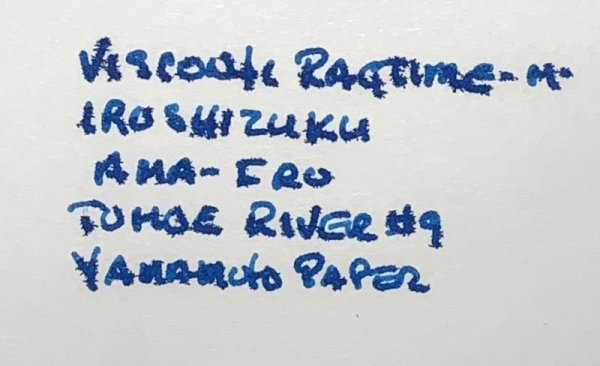 VISCONTI RAGTIME-M.
IROSHIZUKU
AMA-IRO
TOMOE RIVER #9
YAMAMOTO PAPER